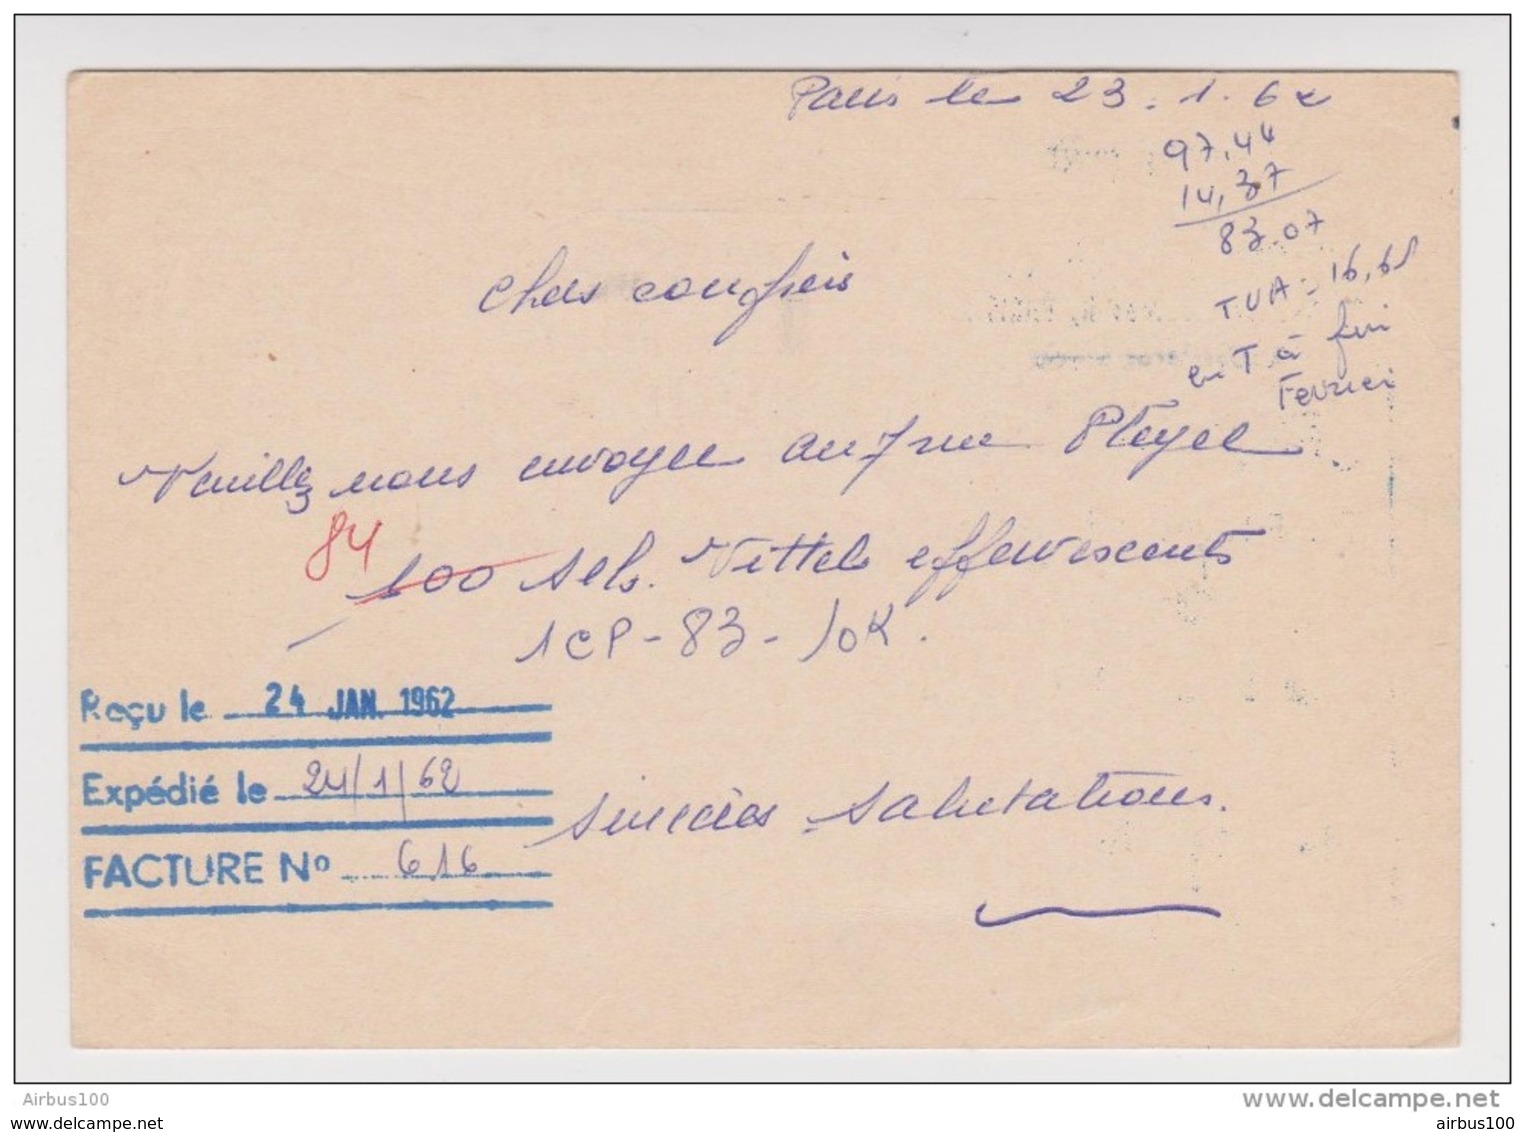 Paris le 23.1.62
97,44
14,37
83.07
TVA = 16,61
en T à fin
Fevrier
Chers confreres
Veuillez nous envoyer au 7 rue Pleyel
84
100 sels. Vittel effervescents
1CP - 83 - / OK.
Reçu le 24 JAN. 1962
Expédié le 24/1/62
FACTURE No 616
sincères salutations.
Airbus100
www.delcampe.net
www.delcampe.net
airbus100